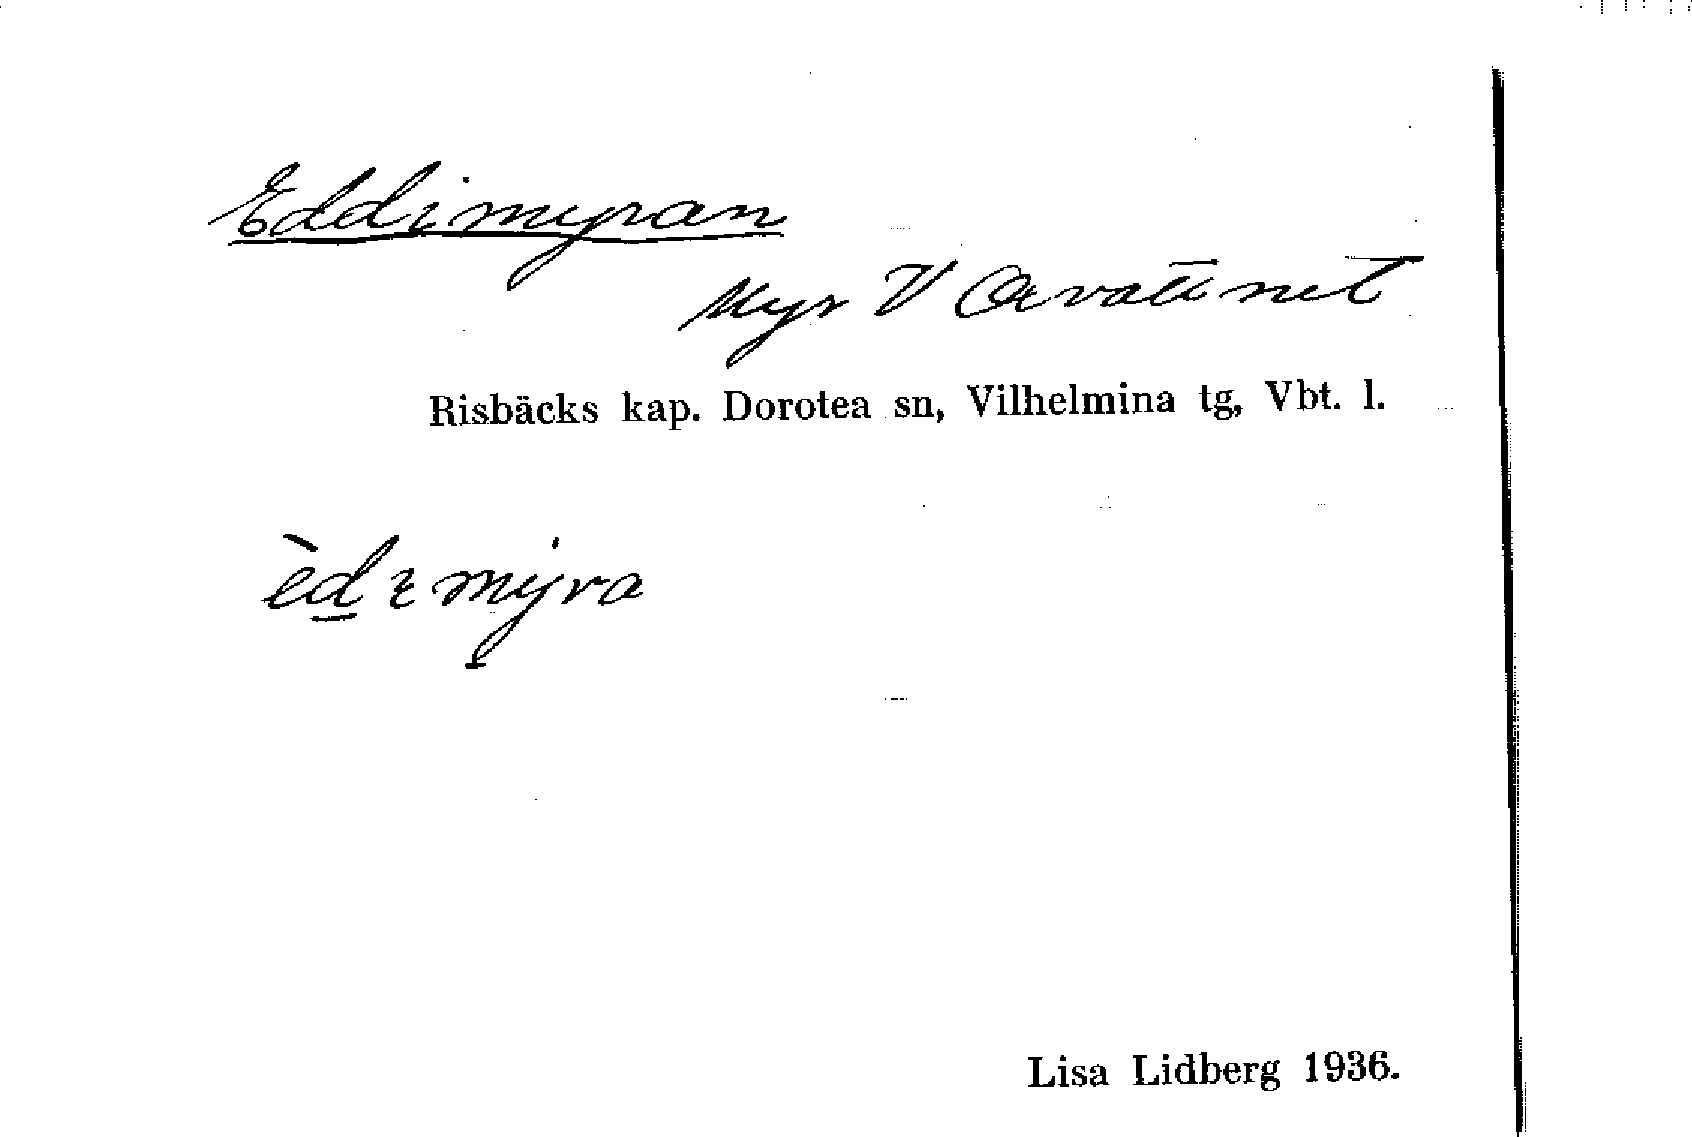 Eddimyran
Myr V Avattnet
Risbäcks kap. Dorotea sn, Vilhelmina tg, Vbt. l.
Lisa Lidberg 1936.